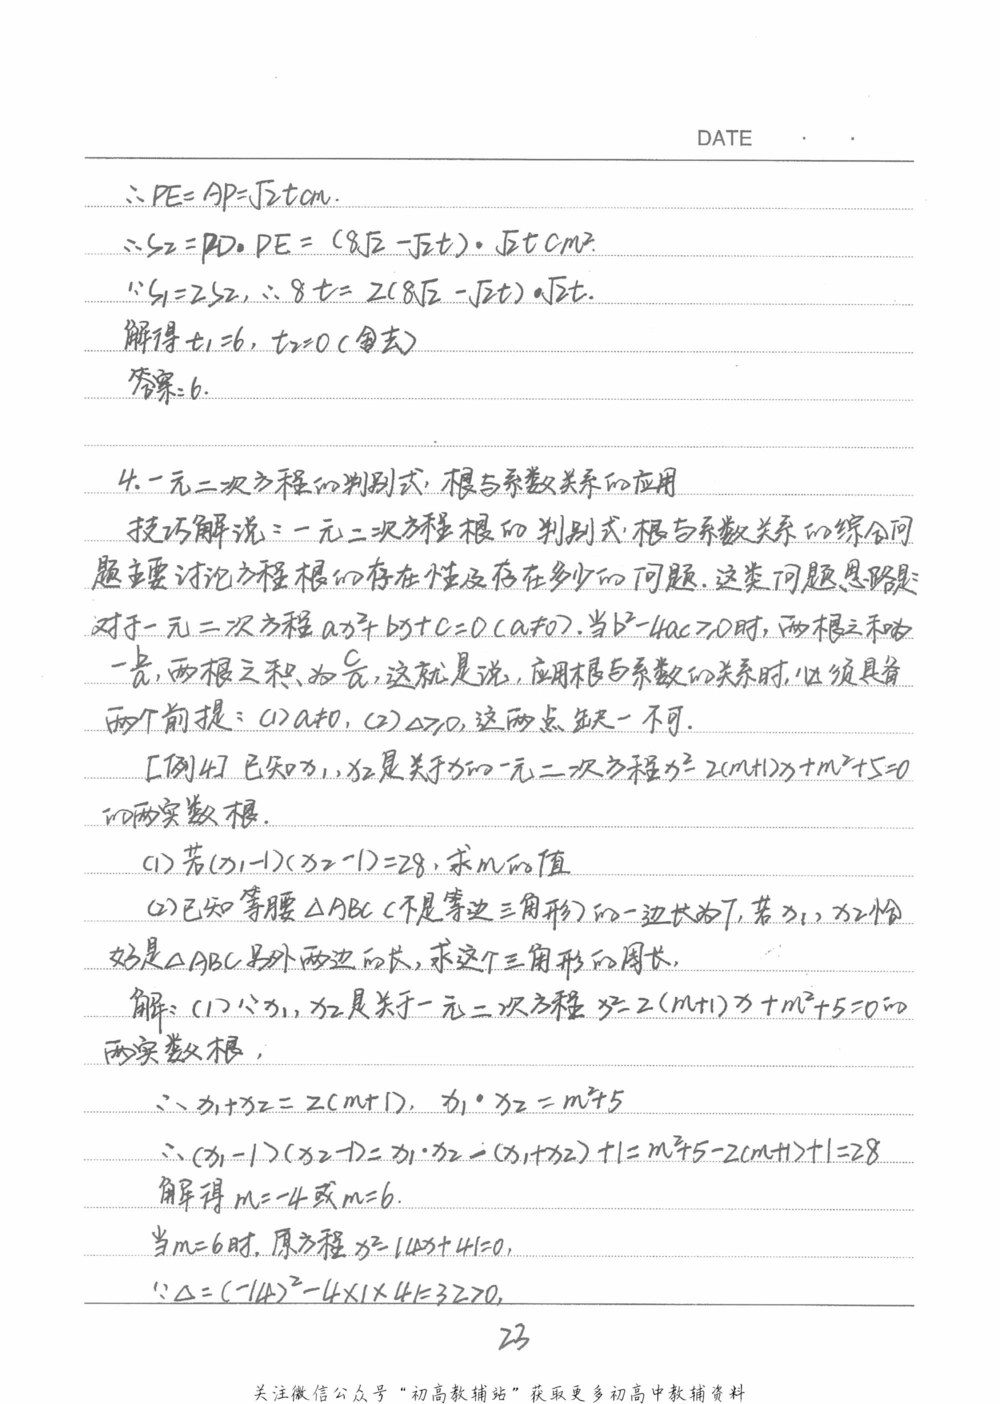 DATE · ·
∴PE=AP=√2tcm.
∴S2=PD·PE=(8√2-√2t)·√2tcm².
∵S1=2S2,∴8t=2(8√2-√2t)·√2t.
解得t1=6,t2=0(舍去)
答案:6.
4.一元二次方程的判别式,根与系数关系的应用
技巧解说:一元二次方程根的判别式·根与系数关系的综合问
题主要讨论方程根的存在性及存在多少的问题.这类问题思路是:
对于一元二次方程ax²+bx+c=0(a≠0).当b²-4ac≥0时,两根之和为
-b/a,两根之积为c/a,这就是说,应用根与系数的关系时,必须具备
两个前提:(1)a≠0,(2)△≥0,这两点缺一不可.
[例4]已知x1,x2是关于x的一元二次方程x²-2(m+1)x+m²+5=0
的两实数根.
(1)若(x1-1)(x2-1)=28,求m的值
(2)已知等腰△ABC(不是等边三角形)的一边长为7,若x1,x2恰
好是△ABC另外两边的长,求这个三角形的周长,
解:(1)∵x1,x2是关于一元二次方程x²-2(m+1)x+m²+5=0的
两实数根,
∴x1+x2=2(m+1),x1·x2=m²+5
∴(x1-1)(x2-1)=x1·x2-(x1+x2)+1=m²+5-2(m+1)+1=28
解得m=-4或m=6.
当m=6时,原方程x²-14x+41=0,
∵△=(-14)²-4×1×41=32>0,
23
关注微信公众号“初高教辅站”获取更多初高中教辅资料